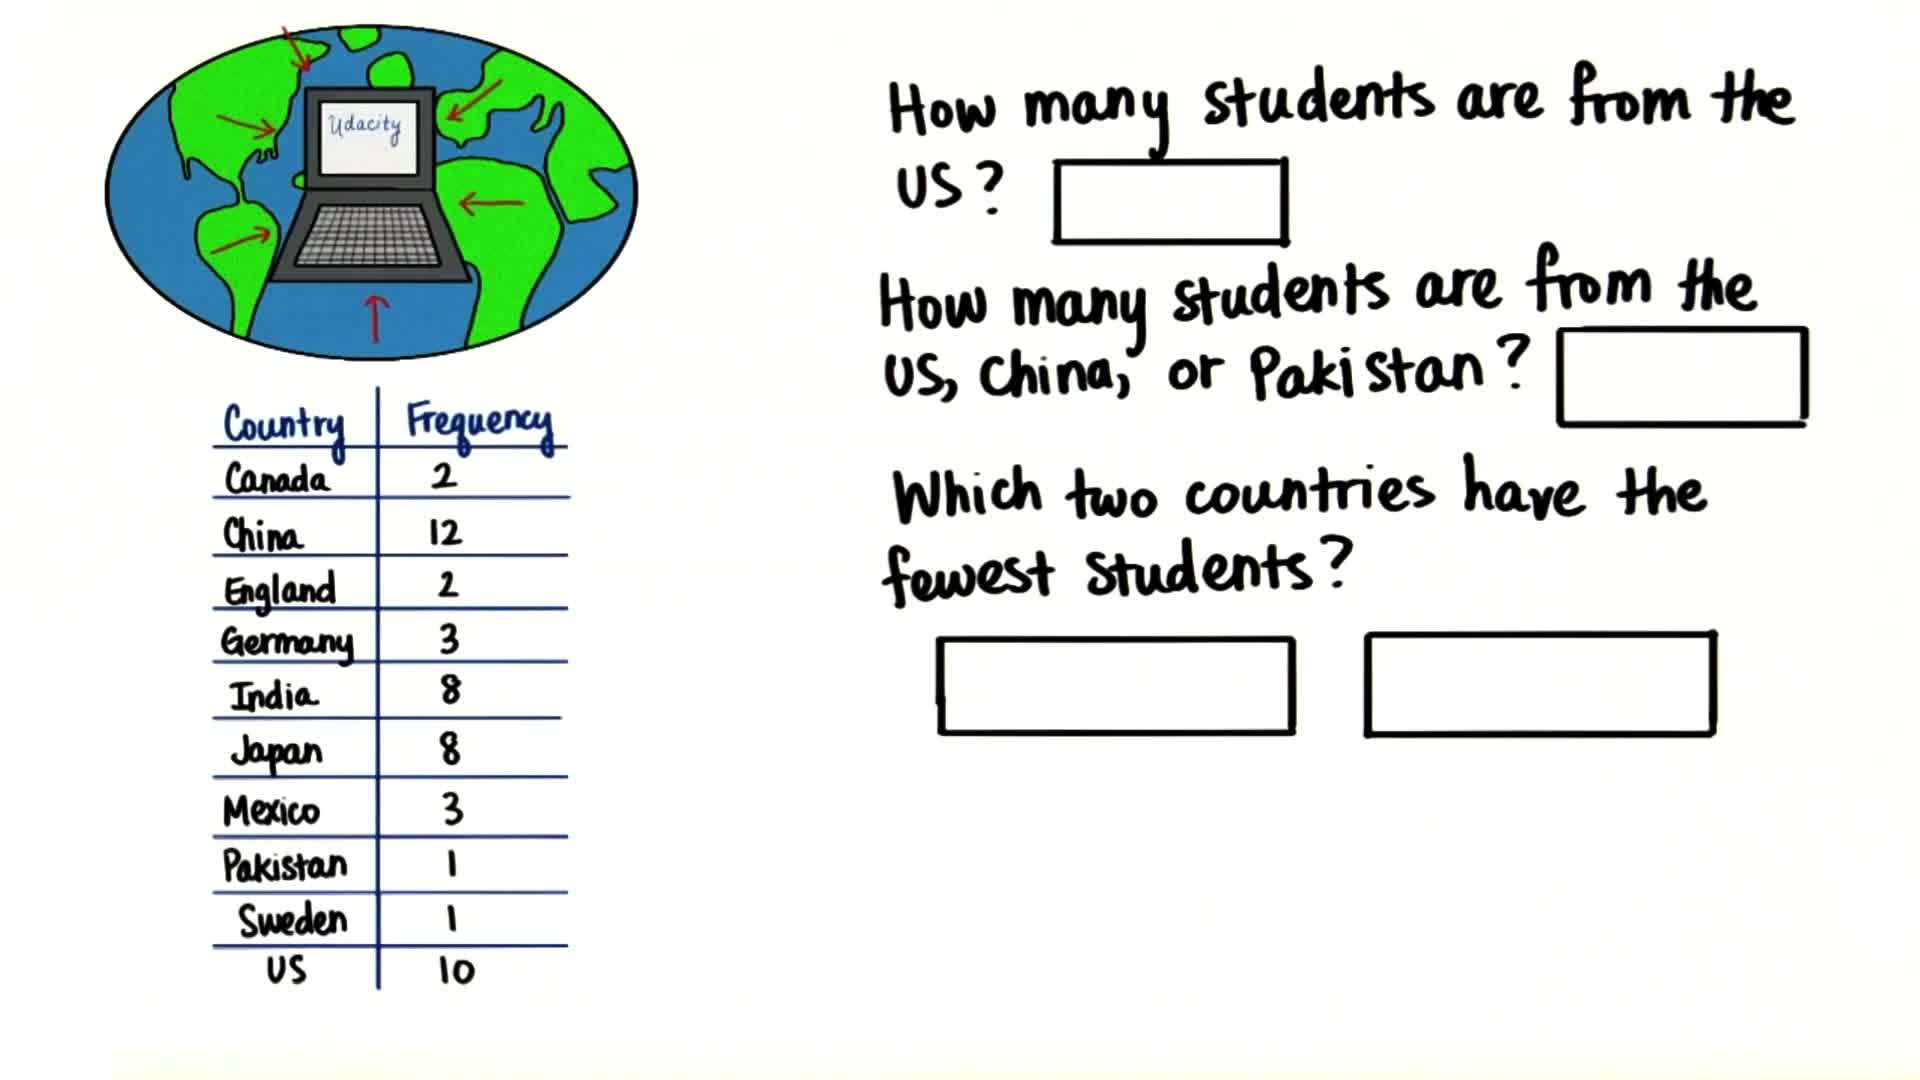 Udacity
Country Frequency
Canada 2
China 12
England 2
Germany 3
India 8
Japan 8
Mexico 3
Pakistan 1
Sweden 1
US 10
How many students are from the
US?
How many students are from the
US, China, or Pakistan?
Which two countries have the
fewest students?